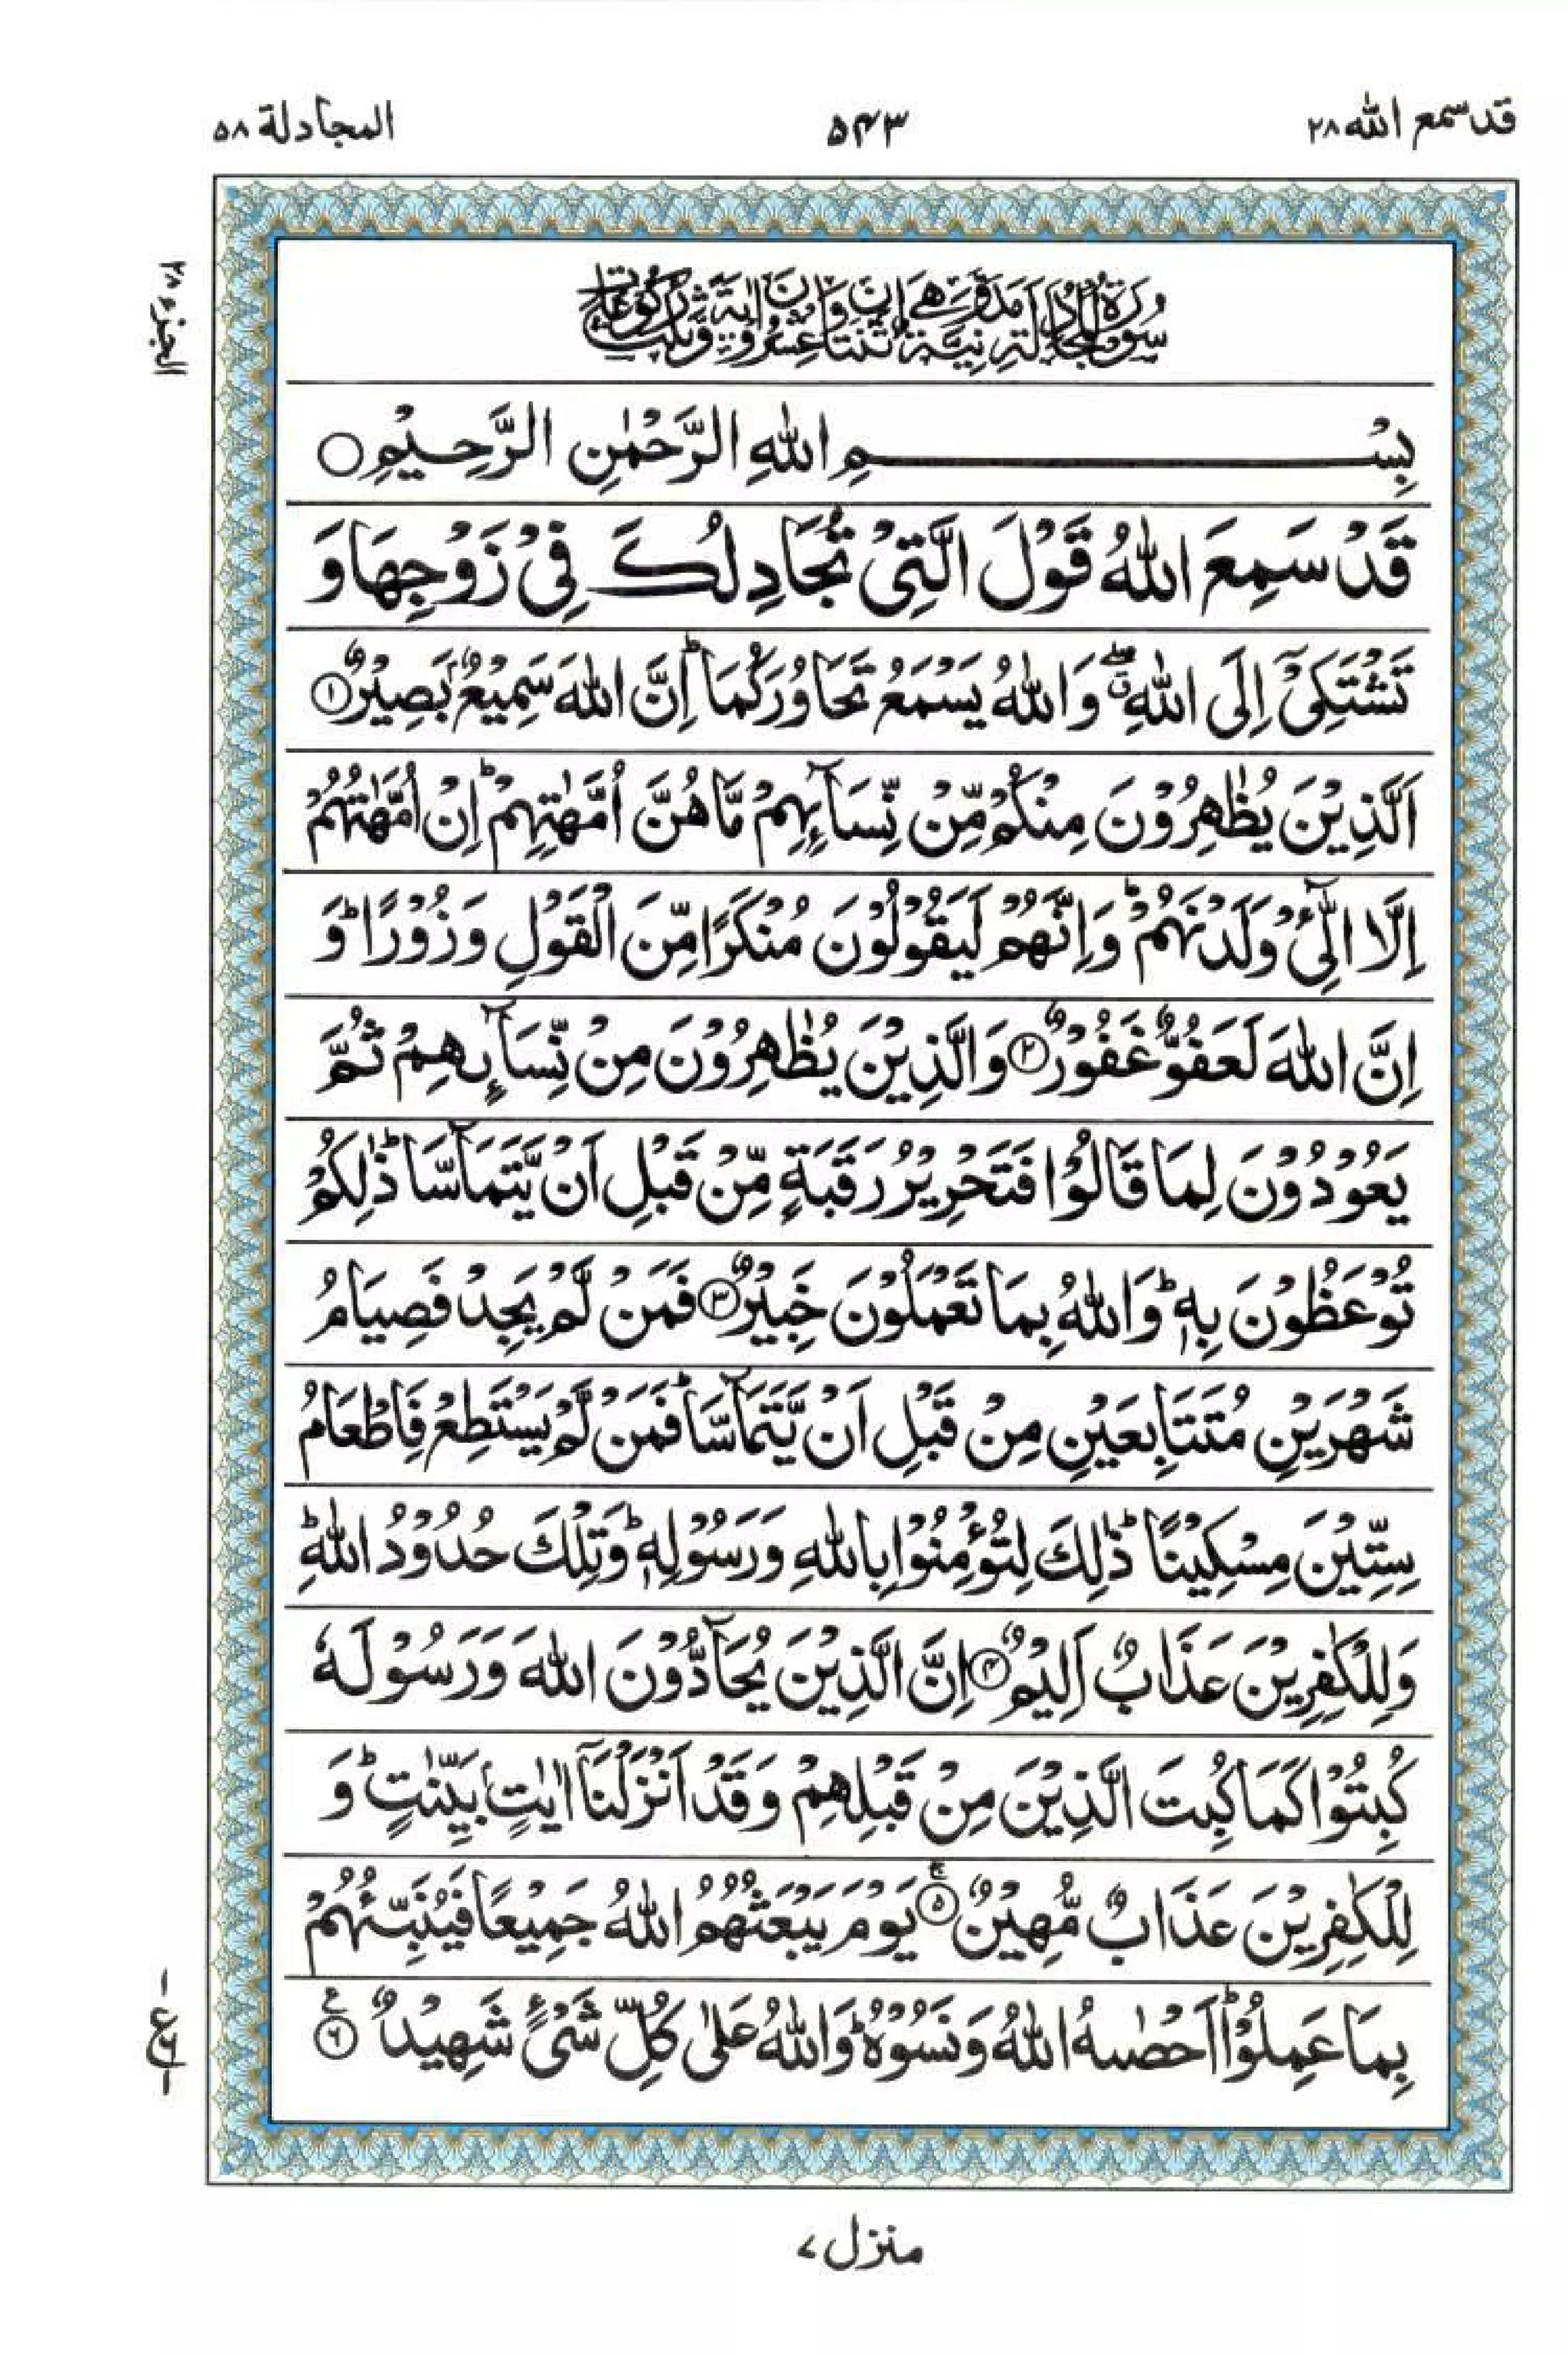 قد سمع الله ۲۸
۵۴۳
المجادلة ۵۸
الجزء ۲۸
سُوْرَةُ الْمُجَادَلَةِ مَدَنِيَّةٌ وَّهِيَ اثْنَتَانِ وَعِشْرُوْنَ اٰيَةً وَّثَلٰثُ رُكُوْعَاتٍ
بِسْمِ اللّٰهِ الرَّحْمٰنِ الرَّحِيْمِ ○
قَدْ سَمِعَ اللّٰهُ قَوْلَ الَّتِيْ تُجَادِلُكَ فِيْ زَوْجِهَا وَ
تَشْتَكِيْٓ اِلَى اللّٰهِ ۖق وَاللّٰهُ يَسْمَعُ تَحَاوُرَكُمَا ؕ اِنَّ اللّٰهَ سَمِيْعٌۢ بَصِيْرٌ ①
اَلَّذِيْنَ يُظٰهِرُوْنَ مِنْكُمْ مِّنْ نِّسَآىِٕهِمْ مَّا هُنَّ اُمَّهٰتِهِمْ ؕ اِنْ اُمَّهٰتُهُمْ
اِلَّا الّٰٓـِٔيْ وَلَدْنَهُمْ ؕ وَاِنَّهُمْ لَيَقُوْلُوْنَ مُنْكَرًا مِّنَ الْقَوْلِ وَزُوْرًا ؕ وَ
اِنَّ اللّٰهَ لَعَفُوٌّ غَفُوْرٌ ② وَالَّذِيْنَ يُظٰهِرُوْنَ مِنْ نِّسَآىِٕهِمْ ثُمَّ
يَعُوْدُوْنَ لِمَا قَالُوْا فَتَحْرِيْرُ رَقَبَةٍ مِّنْ قَبْلِ اَنْ يَّتَمَآسَّا ؕ ذٰلِكُمْ
تُوْعَظُوْنَ بِهٖ ؕ وَاللّٰهُ بِمَا تَعْمَلُوْنَ خَبِيْرٌ ③ فَمَنْ لَّمْ يَجِدْ فَصِيَامُ
شَهْرَيْنِ مُتَتَابِعَيْنِ مِنْ قَبْلِ اَنْ يَّتَمَآسَّا ؕ فَمَنْ لَّمْ يَسْتَطِعْ فَاِطْعَامُ
سِتِّيْنَ مِسْكِيْنًا ؕ ذٰلِكَ لِتُؤْمِنُوْا بِاللّٰهِ وَرَسُوْلِهٖ ؕ وَتِلْكَ حُدُوْدُ اللّٰهِ ؕ
وَلِلْكٰفِرِيْنَ عَذَابٌ اَلِيْمٌ ④ اِنَّ الَّذِيْنَ يُحَآدُّوْنَ اللّٰهَ وَرَسُوْلَهٗ
كُبِتُوْا كَمَا كُبِتَ الَّذِيْنَ مِنْ قَبْلِهِمْ وَقَدْ اَنْزَلْنَآ اٰيٰتٍۭ بَيِّنٰتٍ ؕ وَ
لِلْكٰفِرِيْنَ عَذَابٌ مُّهِيْنٌ ⑤ۚ يَوْمَ يَبْعَثُهُمُ اللّٰهُ جَمِيْعًا فَيُنَبِّئُهُمْ
بِمَا عَمِلُوْا ؕ اَحْصٰىهُ اللّٰهُ وَنَسُوْهُ ؕ وَاللّٰهُ عَلٰى كُلِّ شَيْءٍ شَهِيْدٌ ⑥ ع
منزل ۷